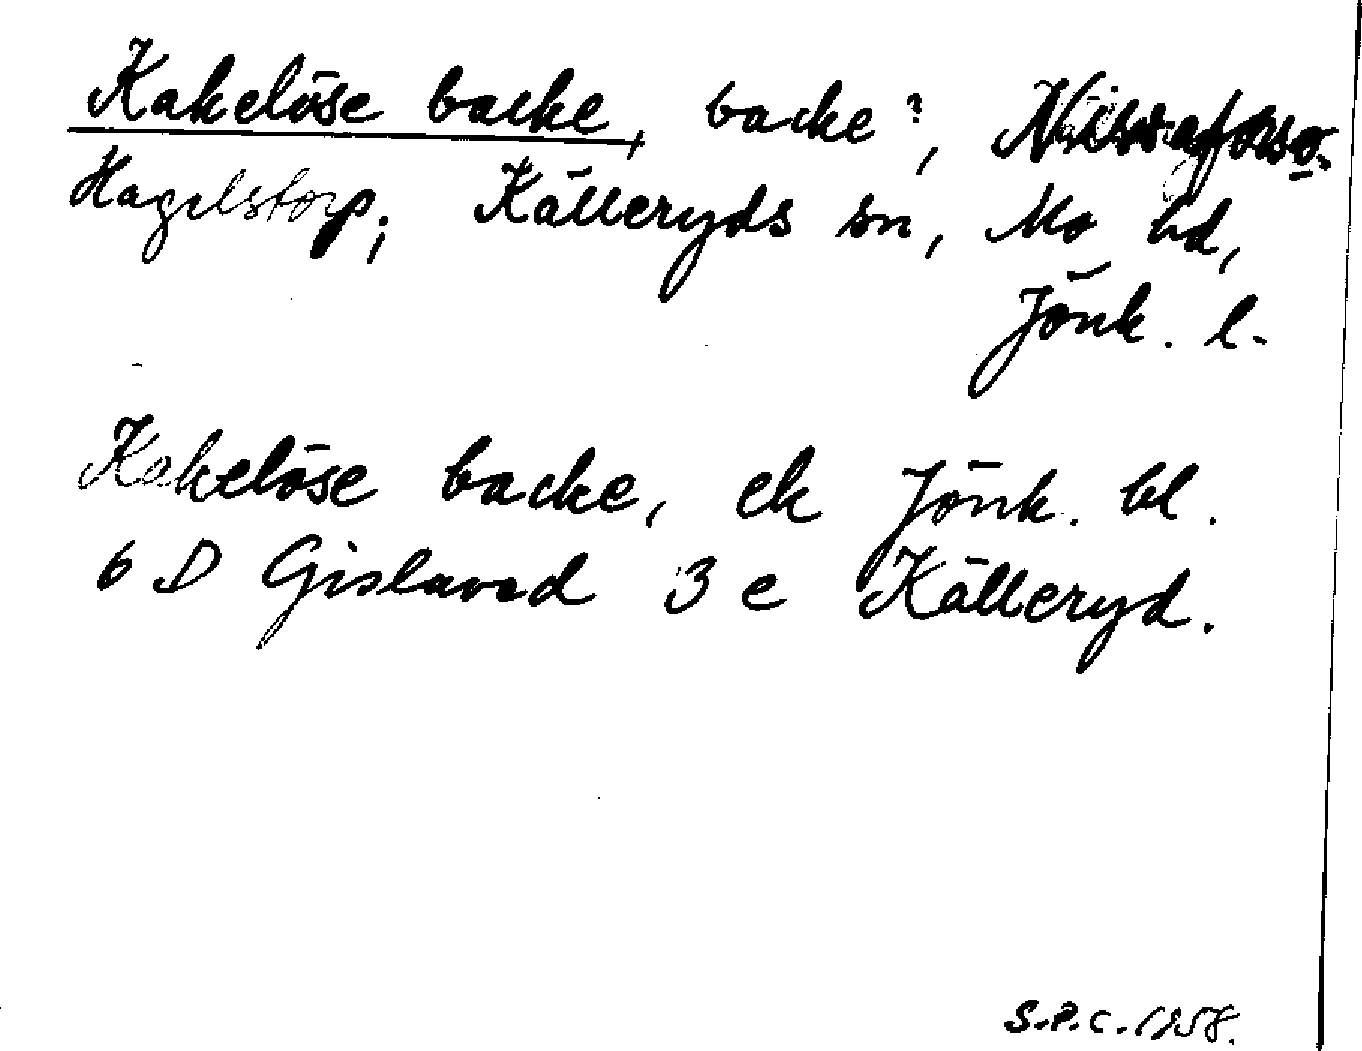 Kakelöse backe, backe?, Nissafors o.
Hagelstorp, Källeryds sn, Mo hd,
Jönk. l.
Kakelöse backe, ek Jönk. bl.
6 D Gislaved 3 e Källeryd.
S.P.C. 1958.